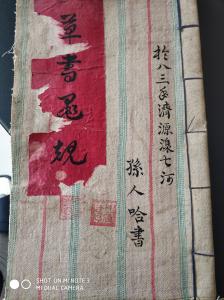 草書要規
於八三年濟源漭七河
孫人哈書
SHOT ON MI NOTE 3
MI DUAL CAMERA